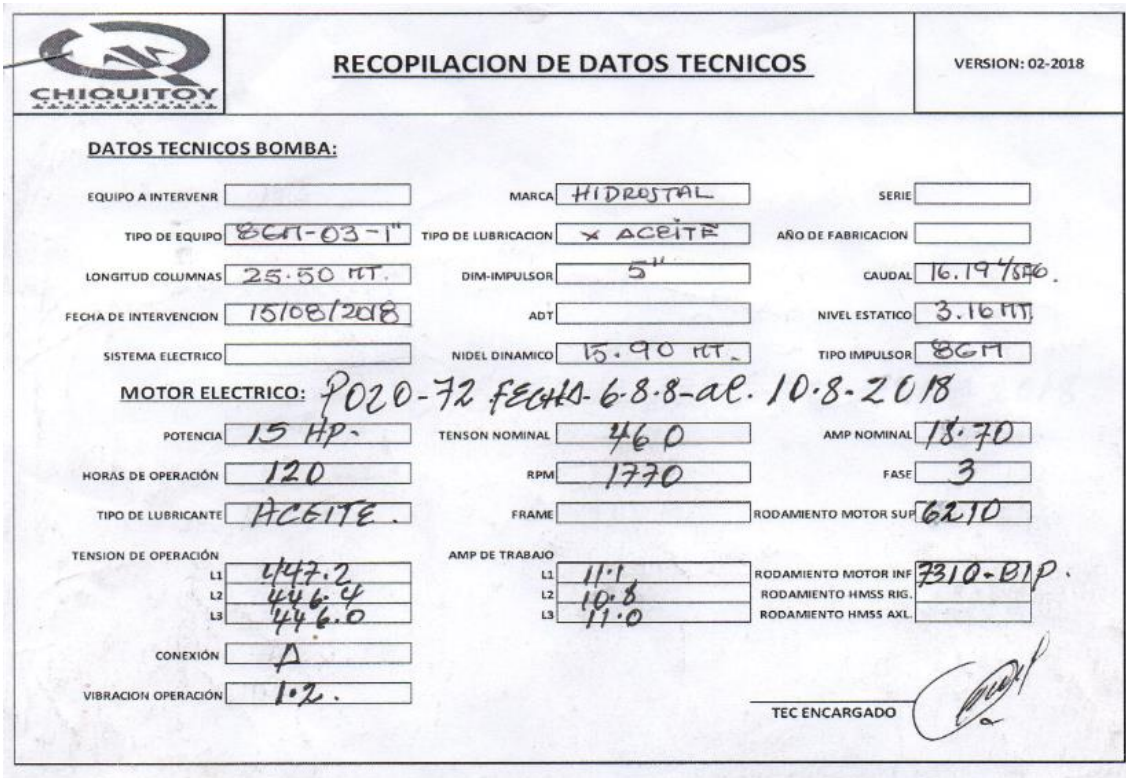 CHIQUITOY
RECOPILACION DE DATOS TECNICOS
VERSION: 02-2018
DATOS TECNICOS BOMBA:
EQUIPO A INTERVENR MARCA HIDROSTAL SERIE
TIPO DE EQUIPO 8GH-03-1" TIPO DE LUBRICACION x ACEITE AÑO DE FABRICACION
LONGITUD COLUMNAS 25.50 MT. DIM-IMPULSOR 5" CAUDAL 16.19
FECHA DE INTERVENCION 15/08/2018 ADT NIVEL ESTATICO 3.16 MT.
SISTEMA ELECTRICO NIDEL DINAMICO 15.90 MT. TIPO IMPULSOR 8GH
MOTOR ELECTRICO: POZO-72 FECHA-6-8-8-al. 10-8-2018
POTENCIA 15 HP- TENSON NOMINAL 460 AMP NOMINAL 18.70
HORAS DE OPERACIÓN 120 RPM 1770 FASE 3
TIPO DE LUBRICANTE ACEITE. FRAME RODAMIENTO MOTOR SUP 6210
TENSION DE OPERACIÓN AMP DE TRABAJO
L1 447.2 L1 11.1 RODAMIENTO MOTOR INF 7310-BIP.
L2 446.4 L2 10.8 RODAMIENTO HMSS RIG.
L3 446.0 L3 11.0 RODAMIENTO HMSS AXL.
CONEXIÓN
VIBRACION OPERACIÓN 1.2.
TEC ENCARGADO